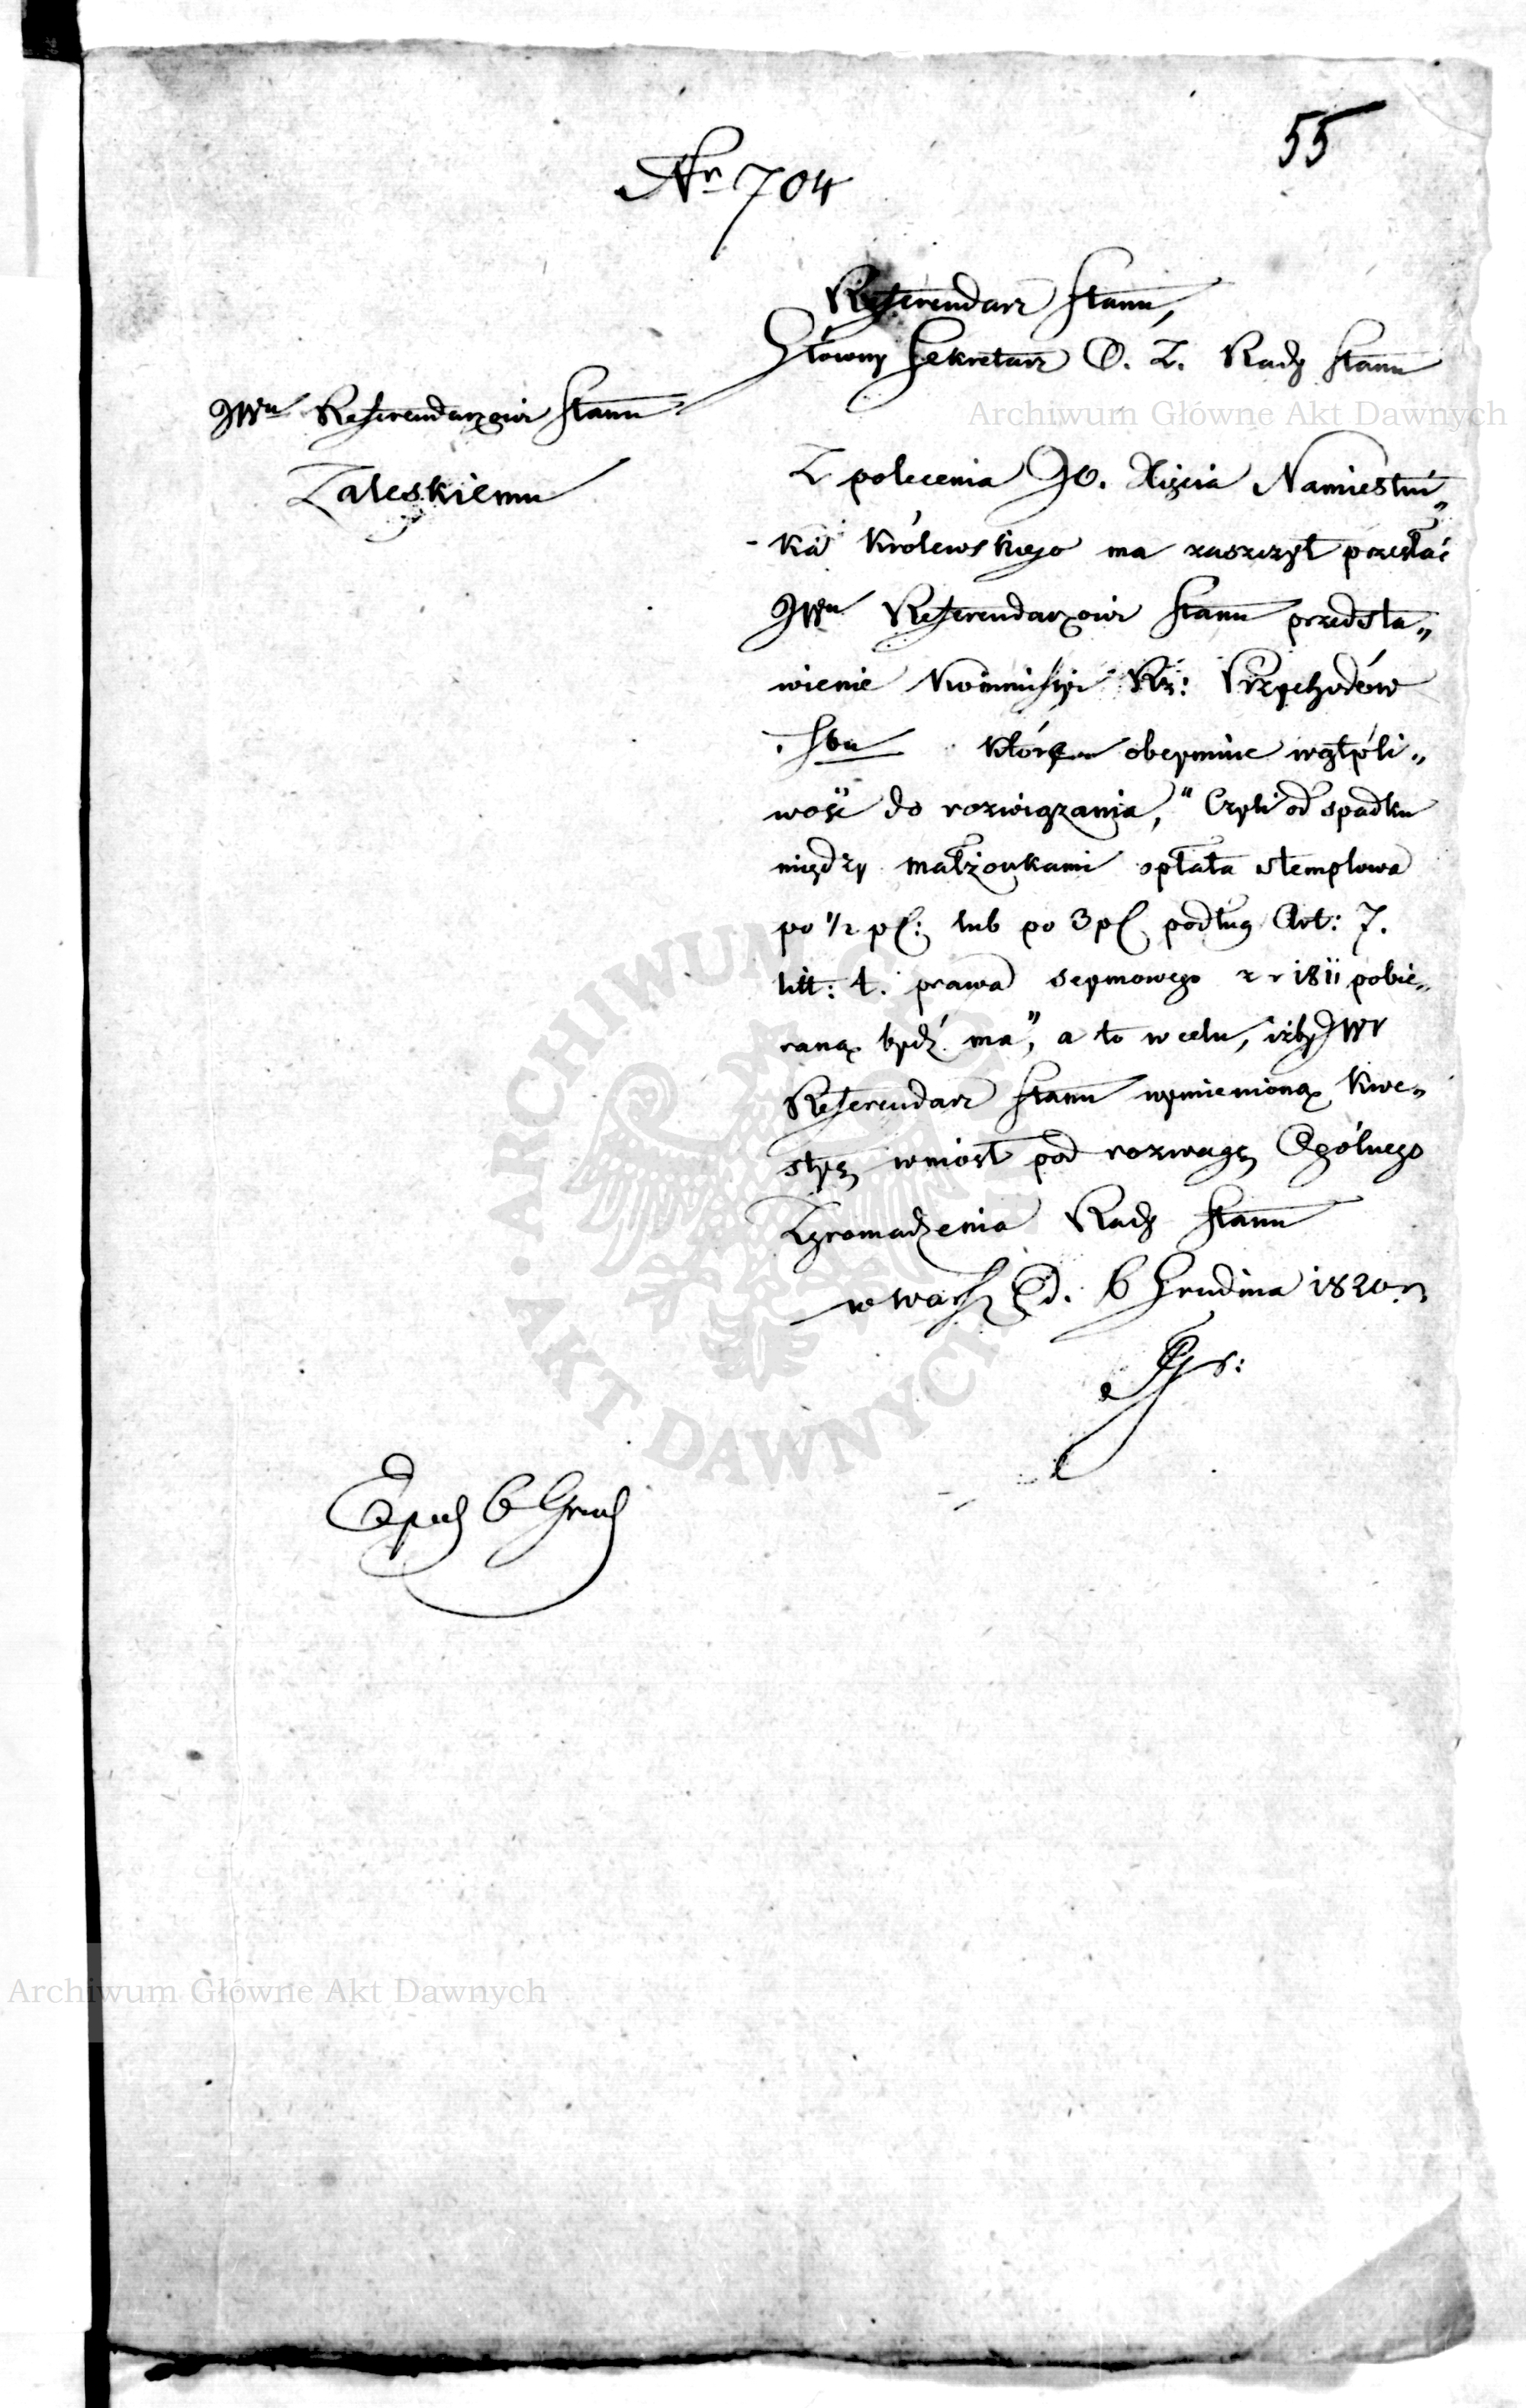 55
Nr 704
Referendarz Stanu,
Główny Sekretarz O. Z. Rady Stanu
JWu Referendarzowi Stanu
Zaleskiemu
Z polecenia JO. Xięcia Namiestni„
ka Królewskiego ma zaszczyt przesłać
JWu Referendarzowi Stanu przedsta„
wienie Kommissyi Rz: Przychodów
Sbu które obeymuie wątpli„
wość do rozwiązania, "Czyli od spadku
między małżonkami opłata stemplowa
po 1/2 pC: lub po 3 pC podług Art: 7.
litt: t. prawa seymowego z r 1811 pobie„
raną bydź ma", a to w celu, iżby JWr
Referendarz Stanu wymienioną kwe„
styę wniósł pod rozwagę Ogólnego
Zgromadzenia Rady Stanu
w Warsz d. 6 Grudnia 1820 r.
Exped 6 Grud
Archiwum Główne Akt Dawnych
Archiwum Główne Akt Dawnych
ARCHIWUM
AKT DAWNYCH